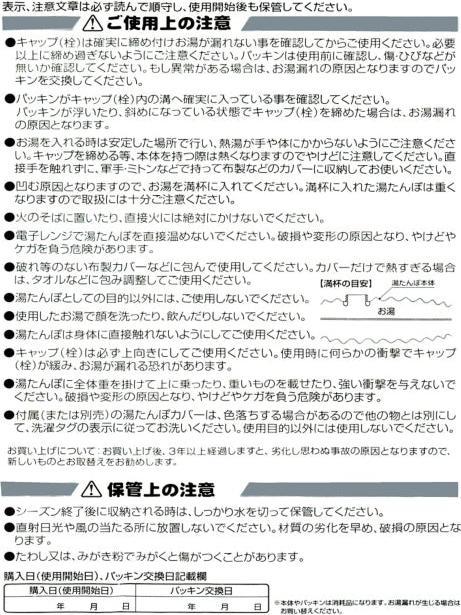 表示、注意文章は必ず読んで順守し、使用開始後も保管してください。
ご使用上の注意
●キャップ(栓)は確実に締め付けお湯が漏れない事を確認してからご使用ください。必要
以上に締め過ぎないようにご注意ください。パッキンは使用前に確認し、傷・ひびなどが
無いか確認してください。もし異常がある場合は、お湯漏れの原因となりますのでパッ
キンを交換してください。
●パッキンがキャップ(栓)内の溝へ確実に入っている事を確認してください。
パッキンが浮いたり、斜めになっている状態でキャップ(栓)を締めた場合は、お湯漏れ
の原因となります。
●お湯を入れる時は安定した場所で行い、熱湯が手や体にかからないようにご注意くださ
い。キャップを締める等、本体を持つ際は熱くなりますのでやけどに注意してください。直
接手を触れずに、軍手・ミトンなどで持って布製などのカバーに収納してお使いください。
●凹む原因となりますので、お湯を満杯に入れてください。満杯に入れた湯たんぽは重く
なりますので取扱には十分ご注意ください。
●火のそばに置いたり、直接火には絶対にかけないでください。
●電子レンジで湯たんぽを直接温めないでください。破損や変形の原因となり、やけどや
ケガを負う危険があります。
●破れ等のない布製カバーなどに包んで使用してください。カバーだけで熱すぎる場合
は、タオルなどに包み調整してご使用ください。
【満杯の目安】
湯たんぽ本体
お湯
●湯たんぽとしての目的以外には、ご使用しないでください。
●使用したお湯で顔を洗ったり、飲んだりしないでください。
●湯たんぽは身体に直接触れないようにしてご使用ください。
●キャップ(栓)は必ず上向きにしてご使用ください。使用時に何らかの衝撃でキャップ
(栓)が緩み、お湯が漏れる恐れがあります。
●湯たんぽに全体重を掛けて上に乗ったり、重いものを載せたり、強い衝撃を与えないで
ください。破損や変形の原因となり、やけどやケガを負う危険があります。
●付属(または別売)の湯たんぽカバーは、色落ちする場合があるので他の物とは別にし
て、洗濯タグの表示に従ってお洗いください。使用目的以外には使用しないでください。
お買い上げについて:お買い上げ後、3年以上経過しますと、劣化し思わぬ事故の原因となりますので、
新しいものとお取替えをお勧めします。
保管上の注意
●シーズン終了後に収納される時は、しっかり水を切って保管してください。
●直射日光や風の当たる所に放置しないでください。材質の劣化を早め、破損の原因とな
ります。
●たわし又は、みがき粉でみがくと傷がつくことがあります。
購入日(使用開始日)、パッキン交換日記載欄
購入日(使用開始日) パッキン交換日
年 月 日 年 月 日
*本体やパッキンは消耗品になります。お湯漏れが生じる場合は
お買い替えください。